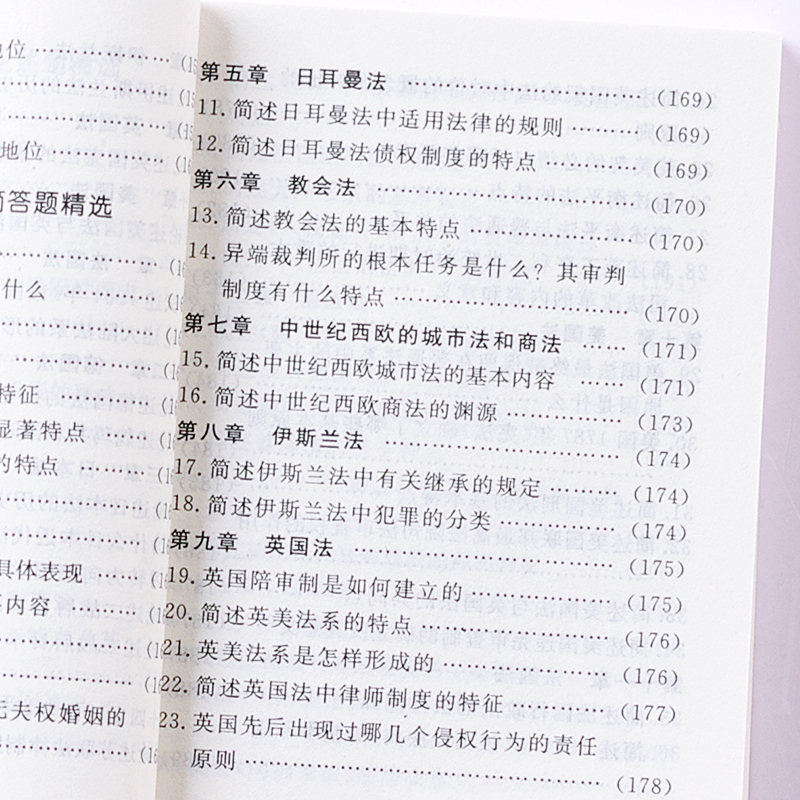 地位
地位
简答题精选
什么
特征
显著特点
的特点
具体表现
内容
夫权婚姻的
第五章 日耳曼法 (169)
11. 简述日耳曼法中适用法律的规则 (169)
12. 简述日耳曼法债权制度的特点 (169)
第六章 教会法 (170)
13. 简述教会法的基本特点 (170)
14. 异端裁判所的根本任务是什么？其审判
制度有什么特点 (170)
第七章 中世纪西欧的城市法和商法 (171)
15. 简述中世纪西欧城市法的基本内容 (171)
16. 简述中世纪西欧商法的渊源 (173)
第八章 伊斯兰法 (174)
17. 简述伊斯兰法中有关继承的规定 (174)
18. 简述伊斯兰法中犯罪的分类 (174)
第九章 英国法 (175)
19. 英国陪审制是如何建立的 (175)
20. 简述英美法系的特点 (176)
21. 英美法系是怎样形成的 (176)
22. 简述英国法中律师制度的特征 (177)
23. 英国先后出现过哪几个侵权行为的责任
原则 (178)